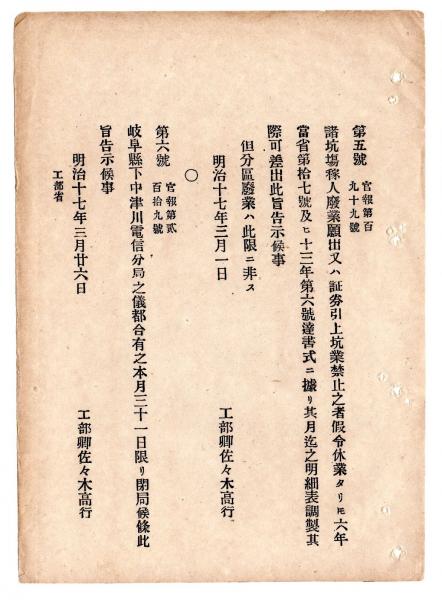 第五號
官報第百
九十九號
諸坑塲稼人廢業願出又ハ証券引上坑業禁止之者假令休業タリ𪜈六年
當省第拾七號及ヒ十三年第六號達書式ニ據リ其月迄之明細表調製其
際可差出此旨吿示候事
但分區廢業ハ此限ニ非ス
明治十七年三月一日
工部卿佐々木高行
○
第六號
官報第貳
百拾九號
岐阜縣下中津川電信分局之儀都合有之本月三十一日限リ閉局候條此
旨吿示候事
明治十七年三月廿六日
工部卿佐々木高行
工部省